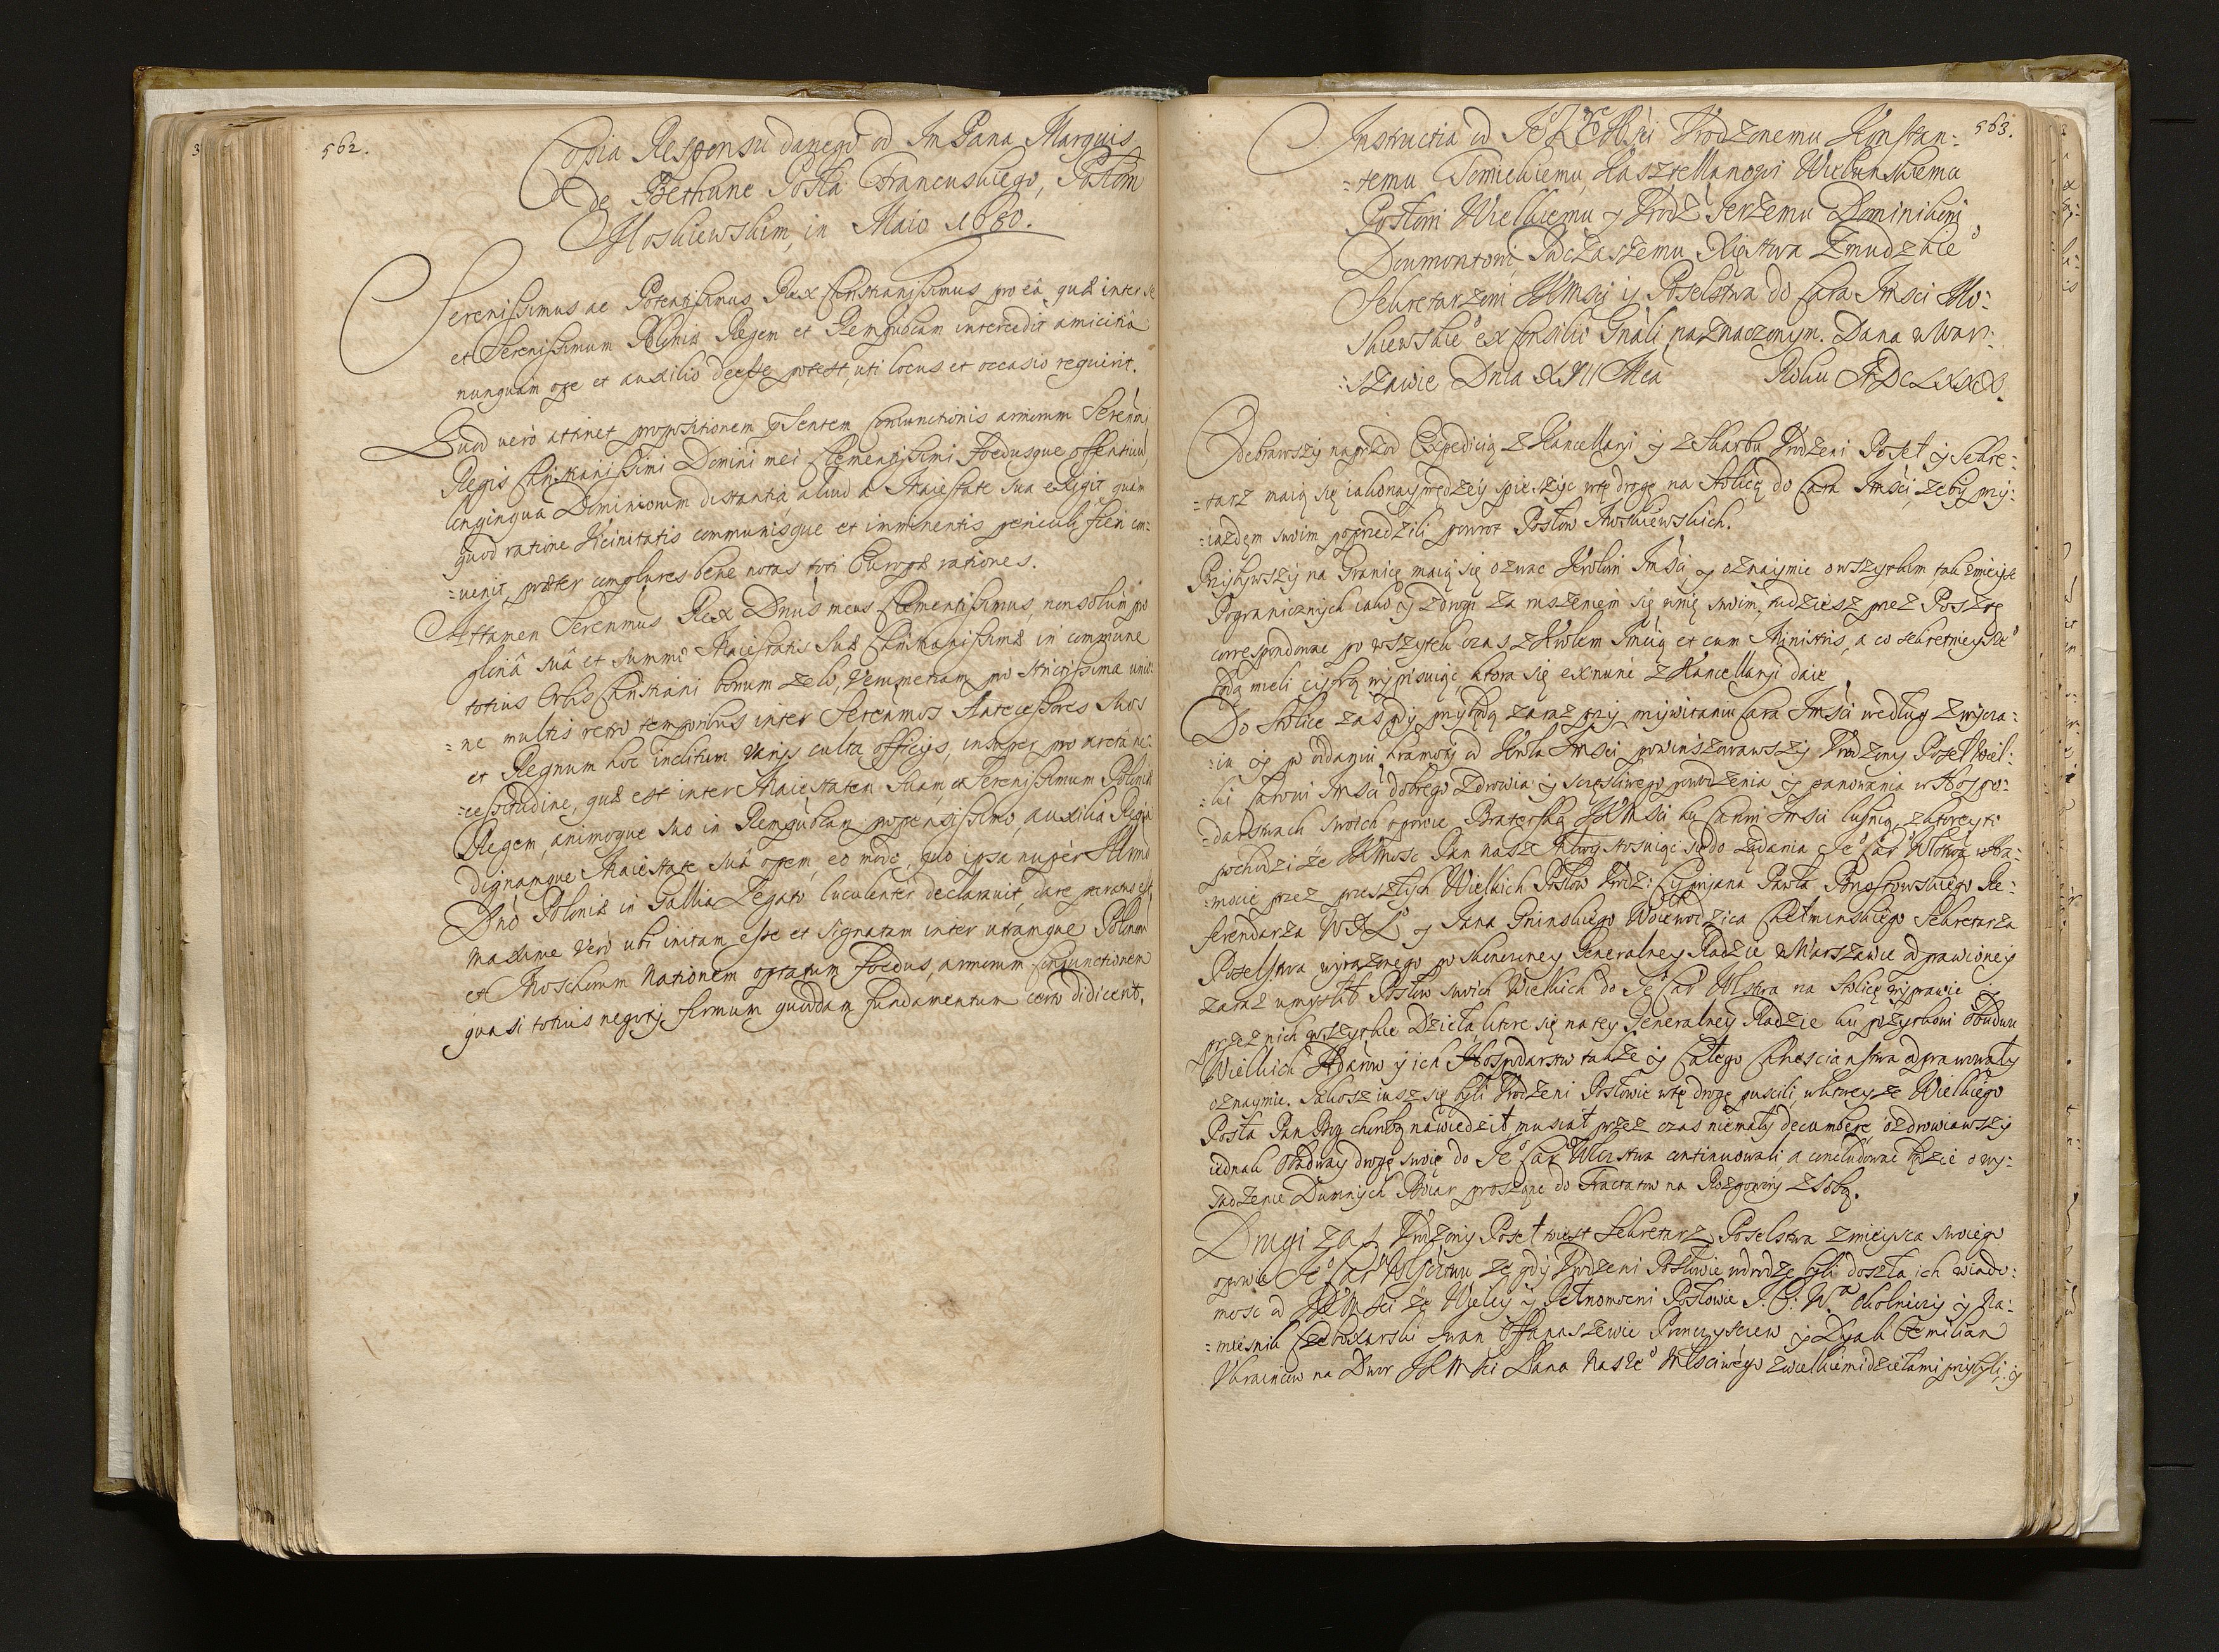 562.
Copia Responsu danego od Jm Pana Marquis
de Bethune Posła Francuskiego, Posłom
Moskiewskim, in Maio 1680.
Serenissimus ac Potentissimus Rex Christianissimus pro eâ, quæ inter se
et Serenissimum Poloniæ Regem et Rempublcam intercedit amicitiâ
nunquam ope et auxilio deesse potest, uti locus et occasio requirit.
Quod verò attinet propositionem pntem Coniunctionis armorum Serenmi
Regis Christianissimi Domini mei Clementissimi Foedusque offensiuũ,
longinqua Dominiorum distantia aliud a Maiestate sua exigit, quàm
quod ratione Vicinitatis communisque et imminentis periculi fieri con:
=uenit, præter complures bene notas toti Europæ rationes.
Attamen Serenmus Rex Dnus meus Clementissimus, non solùm pro
gloriâ suâ et summo Maiestatis Suæ Christianissimæ in commune
totius Orbis Christiani bonum zelo, Verum etiam pro strictissima unio:
=ne multis retro temporibus inter Serenmos Antecessores Suos
et Regnum hoc inclitum varijs culta officijs, insuper pro arcta ne:
=cessitudine, quæ est inter Maiestatem Suam, et Serenissimum Poloniæ
Regem, animoque suo in Rempublcam propensissimo, auxilia Regia
dignamque Maiestate suâ opem, eo modo, quo ipsa nupèr Illrmo
Dno Poloniæ in Gallia Legato luculenter declarauit, dare parata est,
maxime vero ubi initam esse et signatam inter utramque Polonam
et Moschorum Nationem optatum Foedus, armorum Conjunctionem
quasi totius negotij firmum quoddam fundamentum certo didicerit.
563.
Instructia od Je Kr Mści Urodzonemu Konstan:
=temu Tomickiemu, Kasztellanowi Wielunskiemu
Posłowi Wielkiemu, y Urodz Jerzemu Dominikowi
Doumontowi Podczaszemu Xięstwa Zmudzkie
Sekretarzowi JKMsci y Poselstwa do Cara Jmsci Mo:
skiewskie ex Consilio Gnali naznaczonym. Dana w War:
:szawie Dnia XVII Mca Roku MDCLXXX.
Odebrawszy naprzod Expedicią z Kancellaryi y ze Skarbu Urodzeni Poseł y Sekre:
=tarz maią się iakonayprędzey spieszyc w tę drogę na Stolicę do Cara Jmści, zeby przy:
=iazdem swoim poprzedzili powrot Posłow Moskiewskich.
Przybywszy na Granicę maią się ozwac Krolowi Jmści, y oznaymic o wszytkim, tak z mieysc
Pogranicznych iako y z drogi za ruszeniem się w nię swoim, tudziesz przez Posztę
correspondowac po wszytek czas z Krolem Jmcią et cum Ministris, a co sekretnieysze
będą mieli cyfrą wypisuiąc, ktora się ex nunc z Kancellaryi daie.
Do Stolice zas gdy przybędą zaraz przy przywitaniu Cara Jmści według zwycza:
=iu y po oddaniu hramoty od Krola Jmsci powinszowawszy Urodzony Poseł Wiel:
:ki Carowi Jmści dobrego zdrowia y scęśliwego powodzenia y panowania w Hospo:
darstwach swoich opowie Braterską JKMści ku Carowi Jmsci lubosc, z ktorey to
pochodzi że JKMosc Pan nasz Mlwy stosuiąc się do żądania Je Car Wlstwa w hra:
=mocie przez przeszłych Wielkich Posłow Urodz: Cypriana Pawła Brzostowskiego Re:
ferendarza WXL y Jana Gninskiego Woiewodzica Chełminskiego Sekretarza
Poselstwa wyrazonego po skonczoney Generalney Radzie w Warszawie odprawioney
zaraz umyslił Posłow swoich Wielkich do Je Car Wlstwa na Stolicę wyprawic y
przez nich wszytkie Dzieła, ktore się na tey Generalney Radzie ku pozytkowi Obudwu
Wielkich Hdarow y ich Hospodarstw także y Całego Chrescianstwa odprawowały
oznaymic. Jakosz iusz się byli Urodzeni Posłowie w tę drogę puscili, w ktoreysze Wielkiego
Posła Pan Bog chorobą nawiedził, musiał przez czas niemały decumbere, ozdrowiawszy
iednak Obadway drogę swoię do Je Car Wlcstwa continuowali, a concludowac będzie o wy:
sadzenie Dumnych Boiar prosząc do Tractatow na Rozgowory z sobą.
Drugi zas Urodzony Poseł iest Sekretarz Poselstwa z mieysca swoiego
opowie Je Car Wlsctwu, ze gdy Urodzeni Posłowie w drodze byli doszła ich wiado:
mosc od JKMści że Wielcy y Pełnomocni Posłowie J. C. Wa Okolniczy y Na:
=miesnik Czeboxarski Iwan Offanaszewic Proncysczew y Dyak Emilian
Ukraincow na Dwor JKMści Pana Nasze Mlsciwego z wielkiemi dziełami przybyli, y